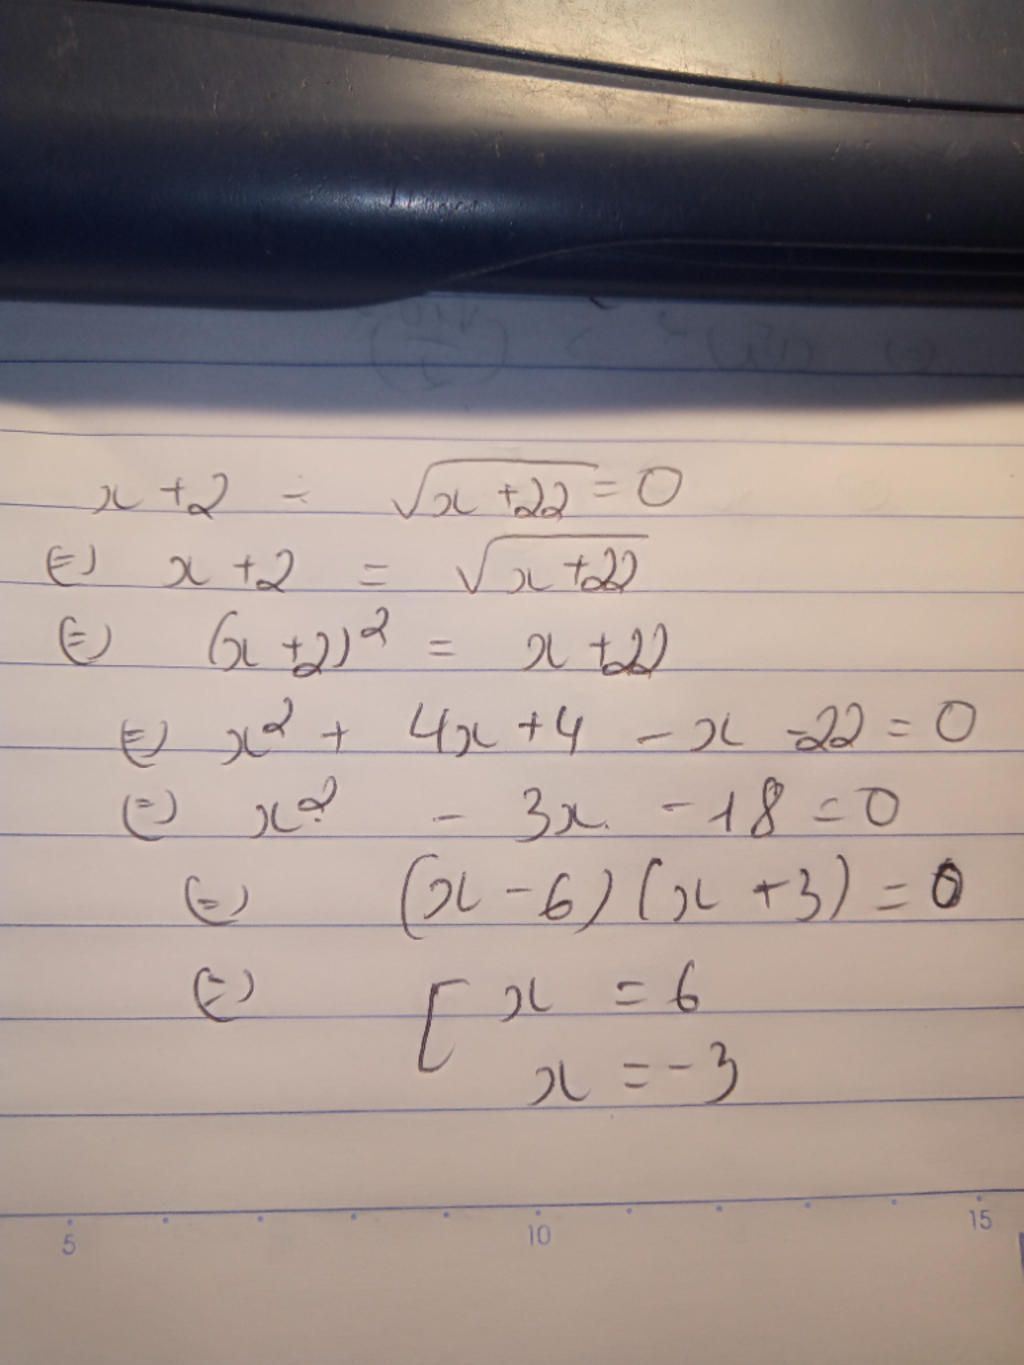 x + 2 - √(x + 22) = 0
⇔ x + 2 = √(x + 22)
⇔ (x + 2)² = x + 22
⇔ x² + 4x + 4 - x - 22 = 0
⇔ x² - 3x - 18 = 0
⇔ (x - 6)(x + 3) = 0
⇔ [ x = 6
x = -3
5 10 15